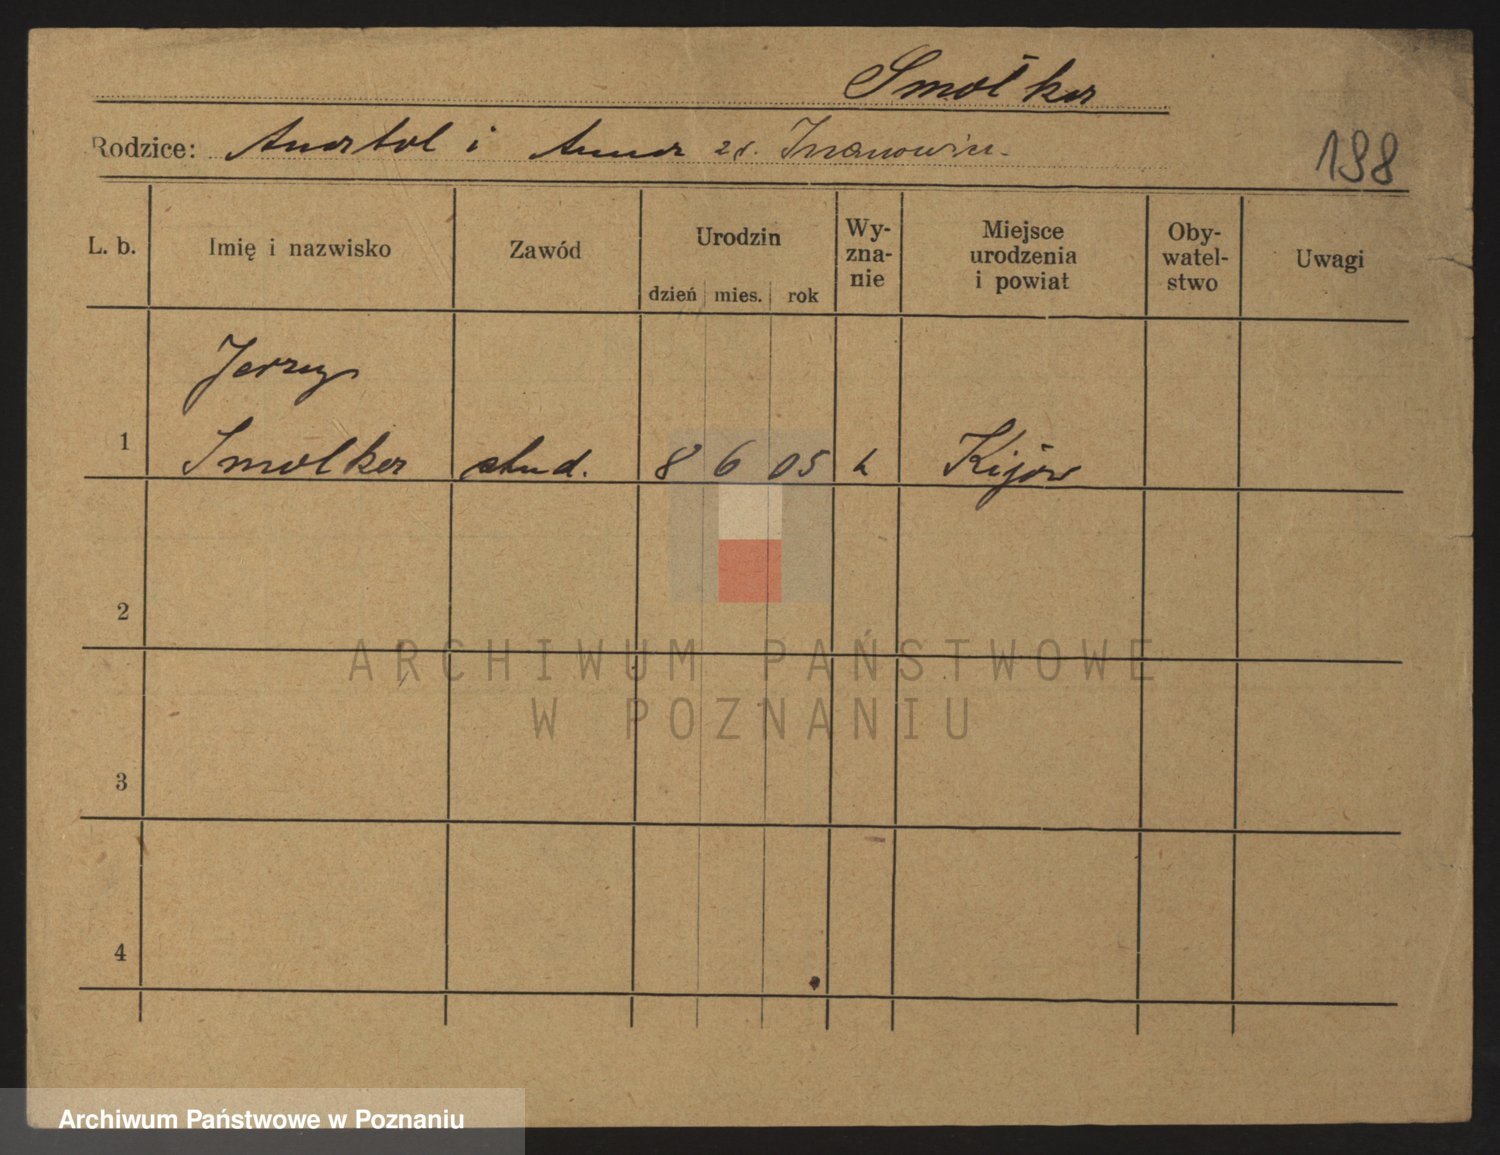 Smółka
Rodzice: Anatol i Anna zd. Iwanowicz
198
L. b. Imię i nazwisko Zawód Urodzin dzień mies. rok Wy-zna-nie Miejsce urodzenia i powiat Oby-watel-stwo Uwagi
Jerzy
1 Smolka stud. 8 6 05 k Kijów
2
ARCHIWUM PAŃSTWOWE
W POZNANIU
3
4
Archiwum Państwowe w Poznaniu